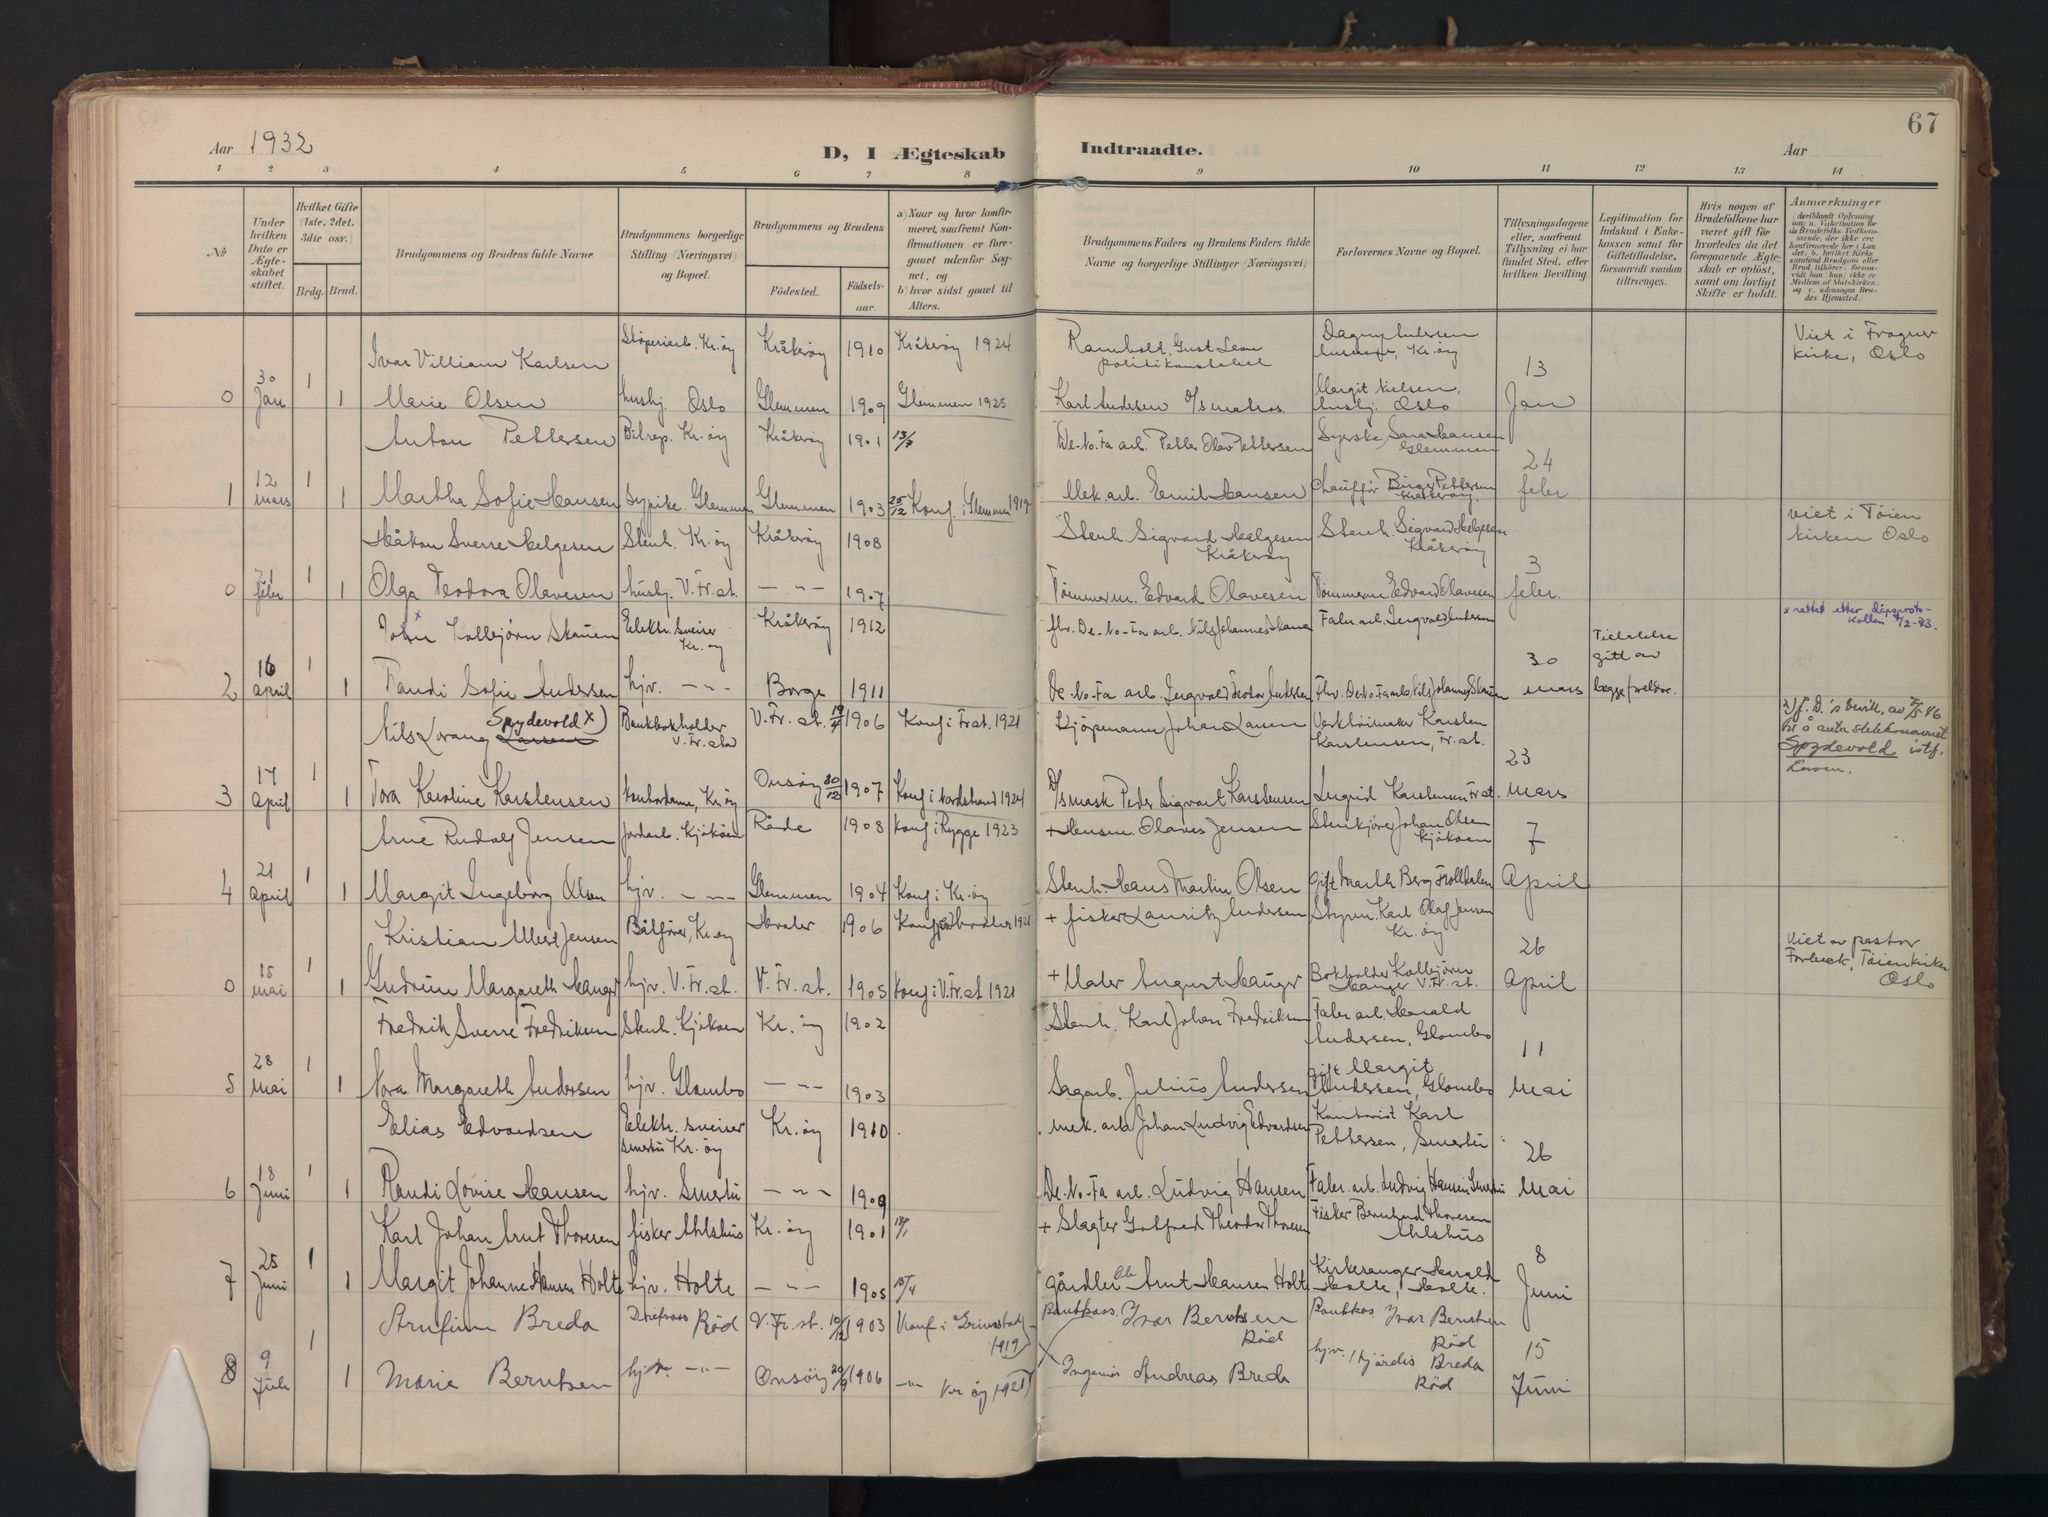 67
Aar 1932
D, I Ægteskab Indtraadte.
Aar
1 2 3 4 5 6 7 8 9 10 11 12 13 14
No
Under hvilken Dato er Ægteskabet stiftet.
Hvilket Gifte (1ste, 2det, 3die osv.)
Brdg. Brud.
Brudgommens og Brudens fulde Navne
Brudgommens borgerlige Stilling (Næringsvei) og Bopæl.
Brudgommens og Brudens
Födested.
Födselsaar.
a) Naar og hvor konfirmeret, saafremt Konfirmationen er foregaaet udenfor Sognet, og
b) hvor sidst gaaet til Alters.
Brudgommens Faders og Brudens Faders fulde Navne og borgerlige Stillinger (Næringsvei)
Forlovernes Navne og Bopæl.
Tillysningsdagene eller, saafremt Tillysning ei har fundet Sted, efter hvilken Bevilling.
Legitimation for Indskud i Enkekassen samt for Giftetilladelse, forsaavidt saadan tiltrænges.
Hvis nogen af Brudefolkene har været gift før hvorledes da det foregaaende Ægteskab er opløst, samt om lovligt Skifte er holdt.
Anmerkninger
Ivar Villiam Karlsen Støperiarb. Kr.øy Kråkerøy 1910 Kråkerøy 1924 Dagny Andersen Kr.øy Viet i Frogner kirke, Oslo
0 30 Jan 1 1 Marie Olsen husbj. Oslo Glemmen 1909 Glemmen 1925 Karl Andersen Margit Nielsen, husbj. Oslo 13 Jan
Anton Pettersen Bilrep. Kr.øy Kråkerøy 1901 13/7 De-No-Fa arb. Petter Olav Pettersen Syerske Sara Hansen Glemmen
1 12 mars 1 1 Martha Sofie Hansen Sypike Glemmen Glemmen 1903 25/12 Konf. i Glemmen 1917 Mek. arb. Emil Hansen Chauffør Birger Pettersen Kråkerøy 24 febr
Håkon Sverre Helgesen Stenh. Kr.øy Kråkerøy 1908 Stenh. Sigvard Helgesen Kråkerøy Stenh. Sigvard Helgesen Kråkerøy viet i Tøien kirken Oslo
0 febr 1 1 Olga Teodora Olavesen husbj. V. Fr.st. – " – 1907 Tømmerm. Edvard Olavesen Tømmerm Edvard Olavesen 3 febr.
John x Kolbjørn Skauen Elektr. sveiser Kr.øy Kråkerøy 1912 fhv. De-No-Fa arb. Nils Johannes Skauen Fabr. arb. Ingvald Andersen x rettet etter dåpsprotokollen
2 16 April 1 1 Randi Sofie Andersen hjv. – " – Borge 1911 De-No-Fa arb. Ingvald Teodor Andersen Fhv. De No Fa arb. Nils Johannes Skauen 30 mars Tilladelse gitt av begge foreldre.
Nils Lorang Larsen Spydevold x) Bankbokholder V. Fr.stad V. Fr. st. 19/4 1906 Konf i Fr.st. 1921 Kjøpmann Johan Larsen Verktøimaker Karsten Karstensen, Fr. st. x) f. D.'s bevill. av 2/5 46 for å anta slektsnavnet Spydevold istf. Larsen.
3 17 April 1 1 Tora Karoline Karstensen kontordame, Kr.øy Onsøy 30/12 1907 Konf i Nordstrand 1924 D/smask Peder Sigvart Karstensen Ingrid Karstensen Fr.st. 23 mars
Arne Rudolf Jensen jordarb. Kjøkøen Råde 1908 Konf i Rygge 1923 + Olaves Jensen Stenkjører Johan Olsen Kjøkøen
4 21 April 1 1 Margit Ingeborg Olsen hjv. – " – Glemmen 1904 Konf i Kr.øy Stenh. Hans Martin Olsen gift Marth Berg Trolldalen 7 April
Kristian Albert Jensen Båtfører, Kr.øy Hvaler 1906 Konf på Hvaler 1921 + fisker Lauritz Andersen Styrm. Karl Olaf Jensen Kr. øy
0 15 Mai 1 1 Gudrun Margareth Hauger hjv. V. Fr. st. V. Fr. st. 1905 Konf i V. Fr. st 1921 + Maler August Hauger Bokholder Kolbjørn Hauger V. Fr. st. 26 April Viet av pastor Forbech, Tøienkirken Oslo
Fredrik Sverre Fredriksen Stenh. Kjøkøen Kr. øy 1902 Stenh. Karl Johan Fredriksen Fabr arb. Harald Andersen, Glombo
5 28 Mai 1 1 Nora Margareth Andersen hjv. Glombo – " – 1903 Sagarb. Julius Andersen gift Margit Andersen, Glombo 11 Mai
Elias Edvardsen Elektr. sveiser Smertu Kr. øy Kr. øy 1910 mek. arb Johan Ludvig Edvardsen Kontorist Karl Pettersen, Smertu
6 18 Juni 1 1 Randi Lovise Hansen hjv. Smertu – " – 1909 De-No-Fa arb. Ludvig Hansen Fabr. arb. Ludvig Hansen Smertu 26 Mai
Karl Johan Arnt Thoresen fisker Ahlshus Kr. øy 1901 + Slagter Gotfred Theodor Thoresen Fisker Bernhard Thoresen Ahlshus
7 25 Juni 1 1 Margit Johanne Hansen Holte hjv. Holte – " – 1905 15/4 gårdbr. Ole Arnt Hansen Holte Kirkesanger Harald Holte, Holte. 8 Juni
Arnfinn Breda Rød V. Fr. st. 10/12 1903 Konf i Grimstad 1919 Bankkass. Ivar Berntsen Rød Bankkas Ivar Berntsen Rød
8 9 Juli 1 1 Marie Berntsen hjv. – " – Onsøy 20/9 1906 – " – Kr øy 1921 Ingeniør Andreas Breda hjv. Hjørdis Breda Rød 15 Juni